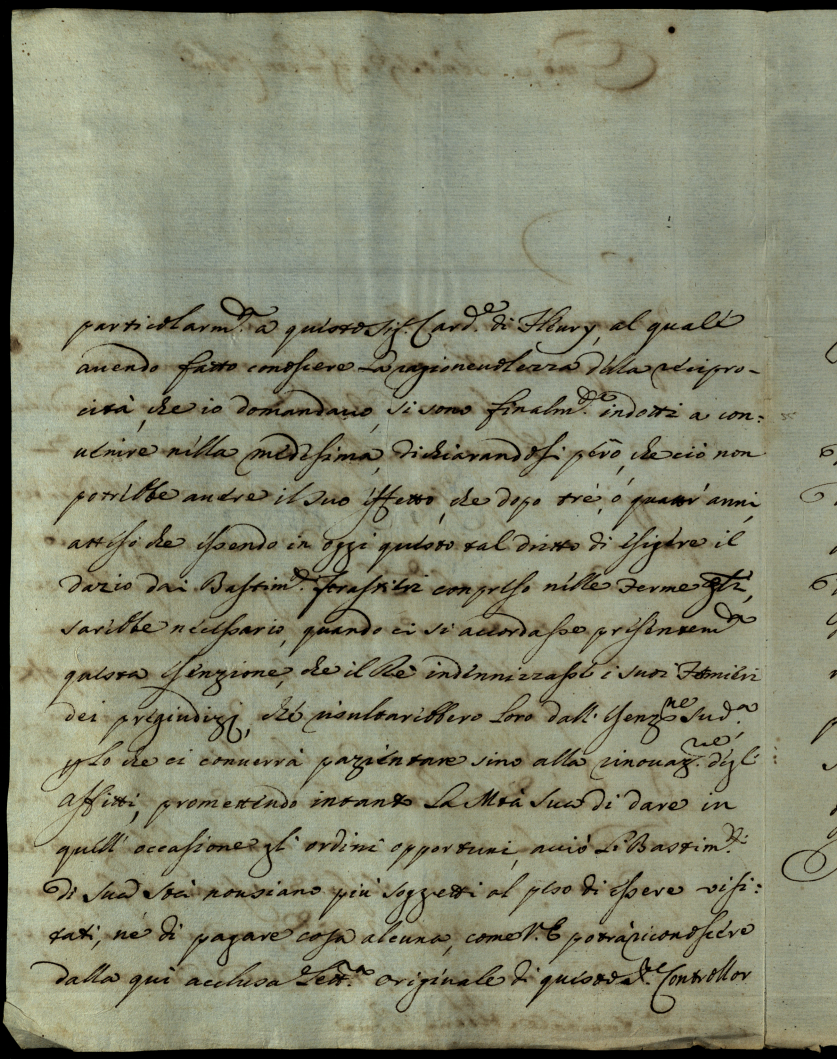 particolarm.te a questo Sig.r Card.le di Fleury, al quale
avendo fatto conoscere la ragionevolezza della recipro-
cità, che io domandavo, si sono finalm.te indotti a con:
venire nella medesima, dichiarandosi però, che ciò non
potrebbe avere il suo effetto, che dopo tre, ó quattr' anni,
atteso che essendo in oggi questo tal dritto di esigere il
dazio dai Bastim.ti forastieri compreso nelle ferme gñli,
sarebbe necessario, quando ci si accordasse presentem.te
questa esenzione, che il Re indennizzasse i suoi Fermieri
dei pregiudizj, che risultarebbero loro dall' esenz.ne sud.a,
p lo che ci converrà pazientare sino alla rinovaz.ne degl'
affitti, promettendo intanto la Mtà Sua di dare in
quell' occasione gl' ordini opportuni, acciò li Bastim.ti
di Sua Stà non siano più soggetti al peso di essere visi:
tati, né di pagare cosa alcuna, come V.E. potrà riconoscere
dalla qui acclusa Lett.a originale di questo Controllor